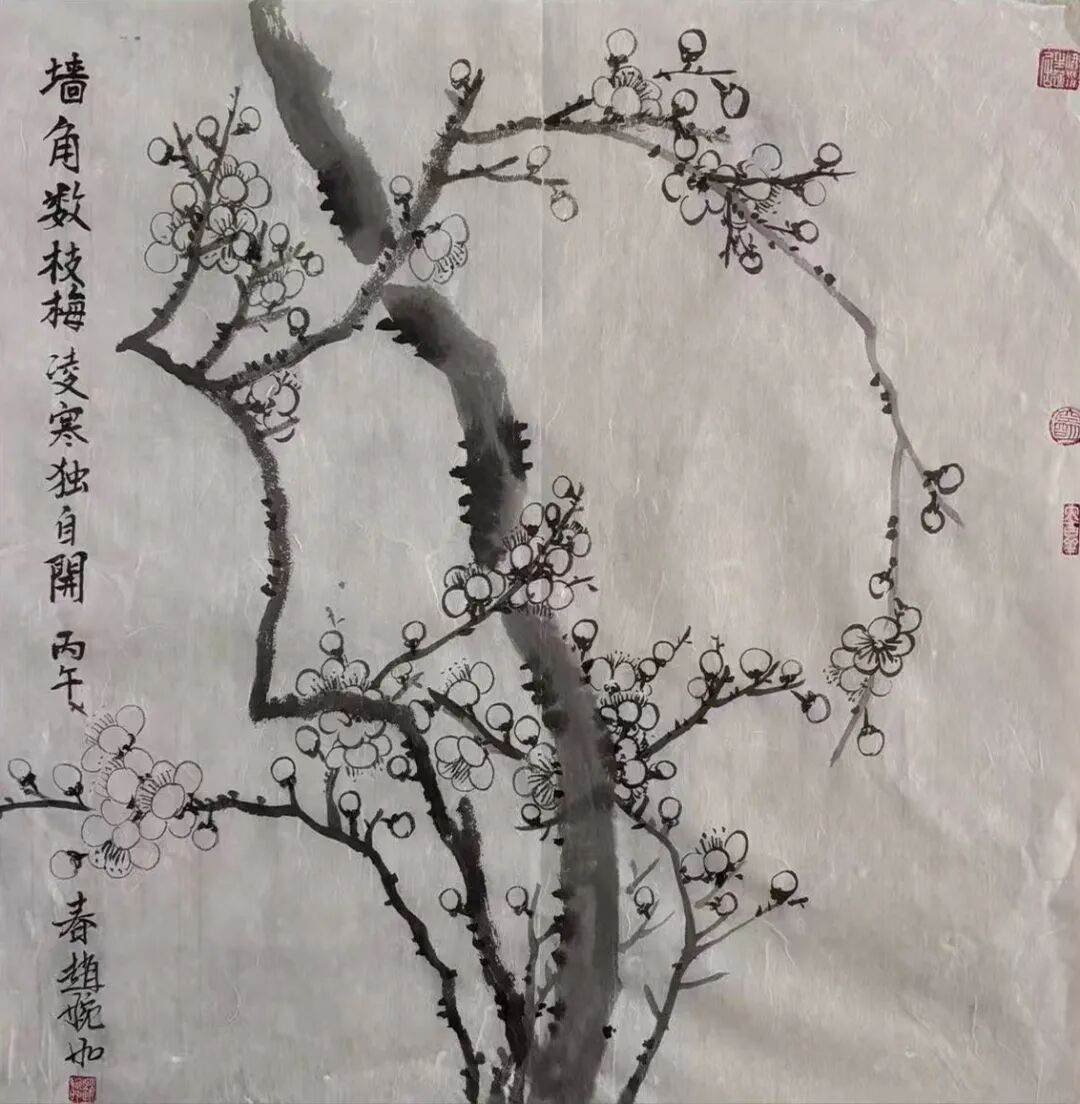 墙角数枝梅 凌寒独自開 丙午
春趙婉如